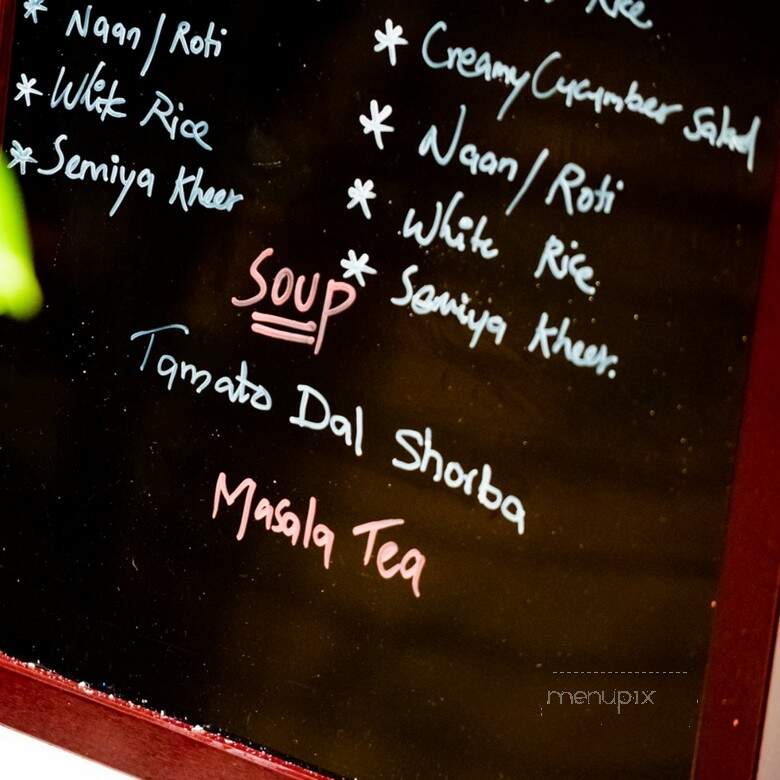 * Naan/Roti
* White Rice
* Semiya Kheer
Rice
* Creamy Cucumber Salad
* Naan/Roti
* White Rice
* Semiya Kheer.
SOUP
Tamato Dal Shorba
Masala Tea
menupix